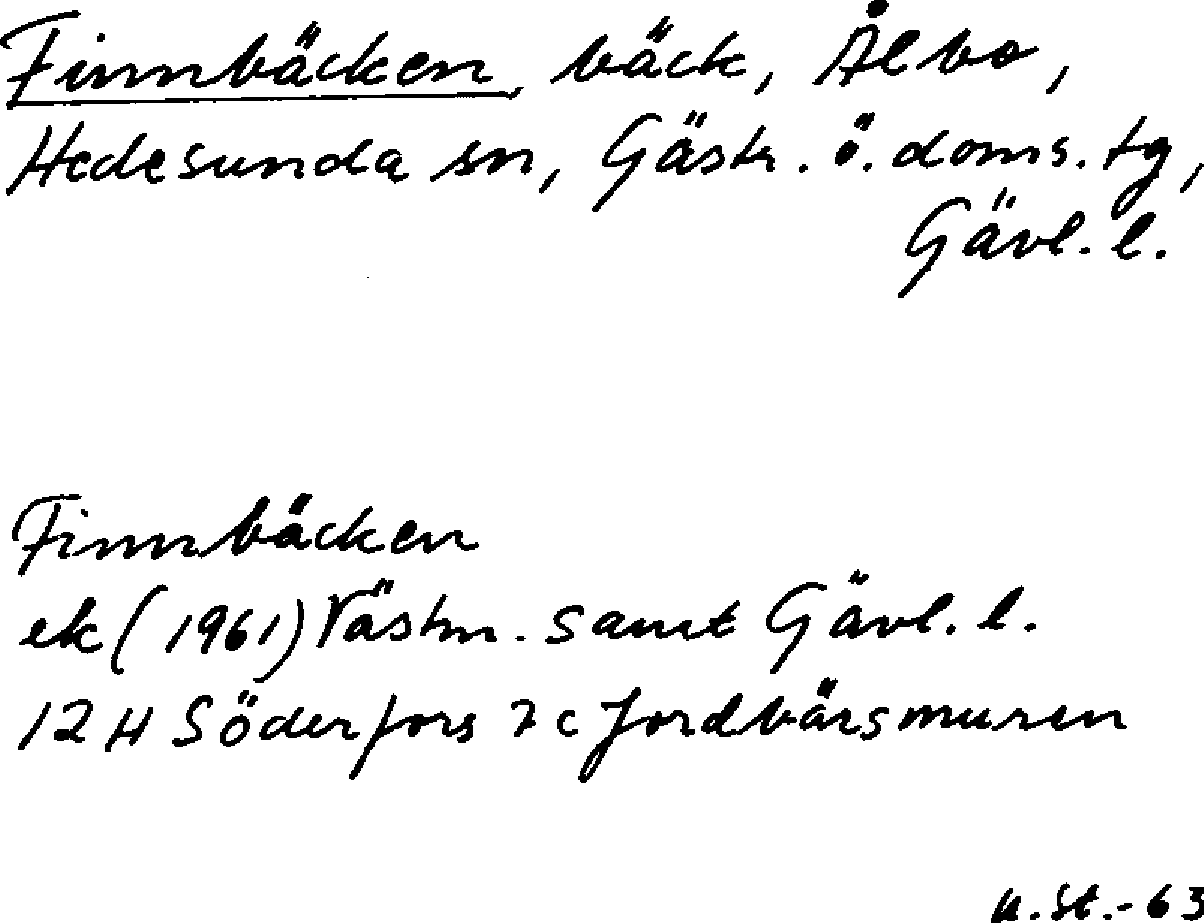 Finnbäcken, bäck, Ålbo,
Hedesunda sn, Gästr. ö. doms. tg,
Gävl. l.
Finnbäcken
ek (1961) Västm. samt Gävl. l.
12 H Söderfors 7 c Jordbärsmuren
u.St.-63